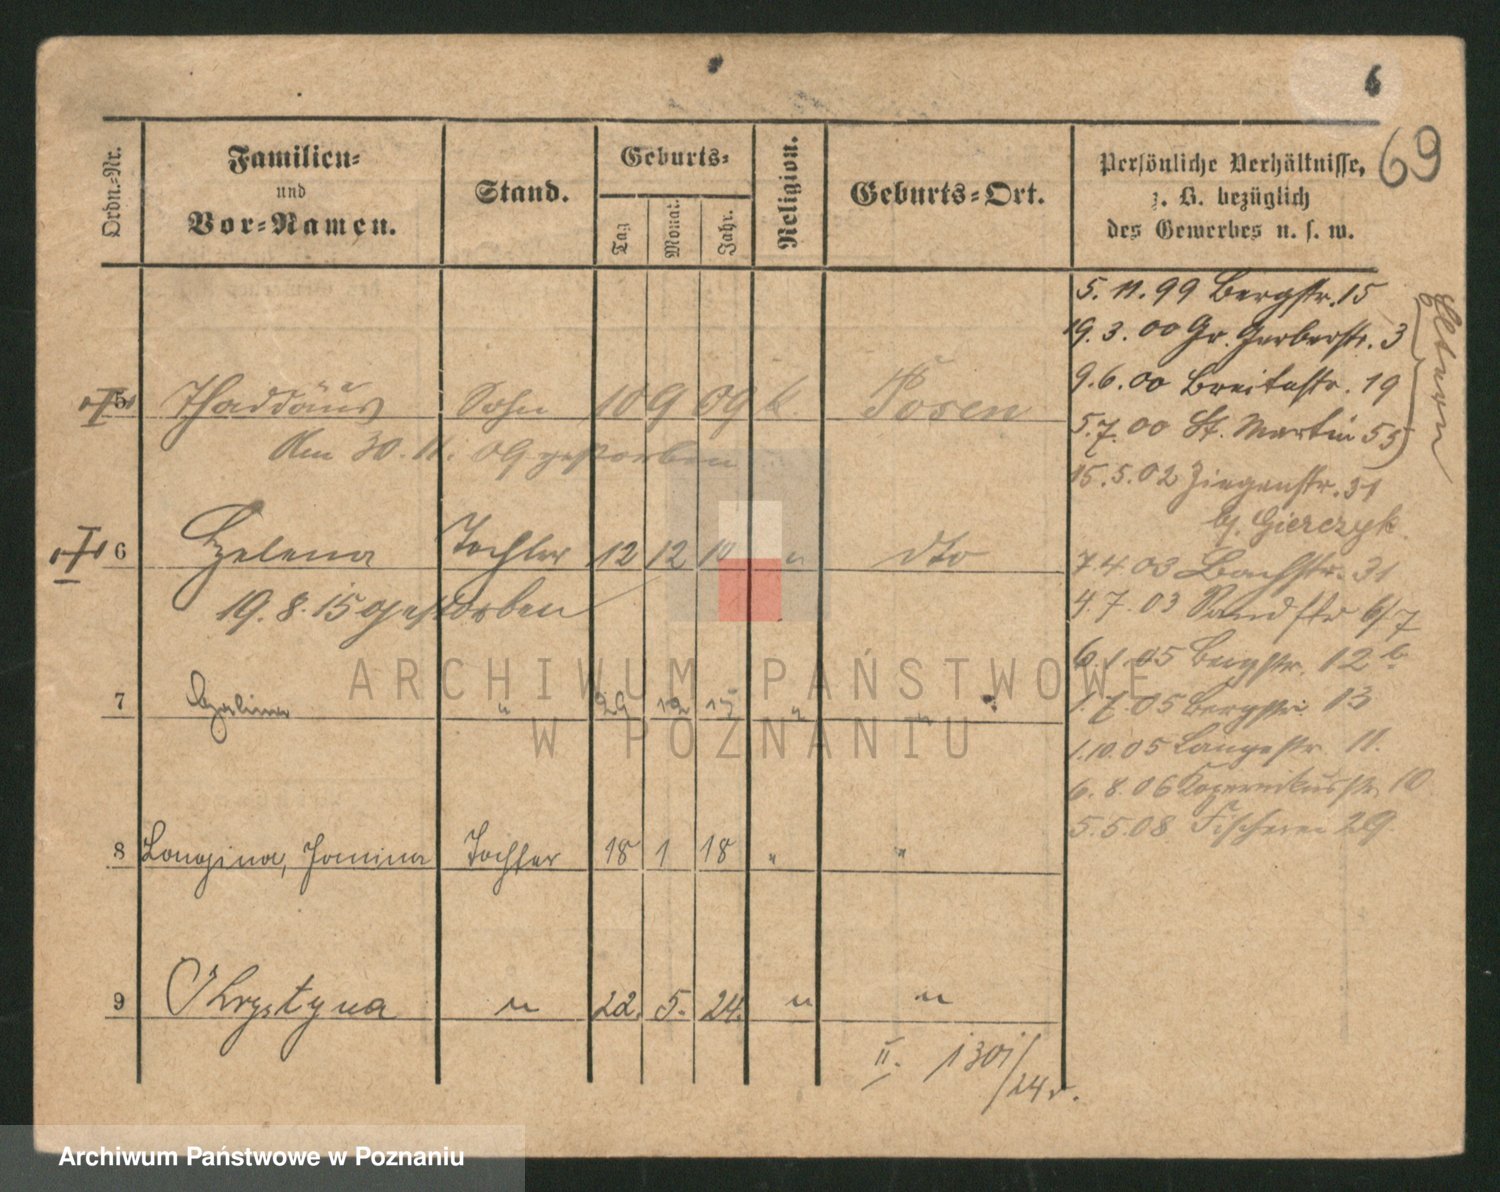 6
69
Ordn.-Nr.
Familien-
und
Vor-Namen.
Stand.
Geburts-
Tag
Monat.
Jahr.
Religion.
Geburts-Ort.
Persönliche Verhältnisse,
z. B. bezüglich
des Gewerbes u. s. w.
5. 11. 99 Bergstr. 15
19. 3. 00 Gr. Gerberstr. 3
9. 6. 00 Breitestr. 19
5. 7. 00 St. Martin 55
Eltern
15. 5. 02 Ziegenstr. 31
bj. Gierczyk.
7. 4. 03 Bachstr. 31
4. 7. 03 Sandstr 6/7
6. 1. 05 Bergstr. 12 b
1. 7. 05 Bergstr. 13
1. 10. 05 Langestr. 11.
6. 8. 06 Kopernikusstr. 10
5. 5. 08 Fischerei 29.
5 Thaddäus Sohn 10 9 09 k. Posen
Am 30. 11. 09 gestorben
6 Helena Tochter 12 12 10 " dto
19. 8. 15 gestorben
7 " 29 12 15 " "
8 Longina, Janina Tochter 18 1 18 " "
9 Chrystyna " 22. 5. 24. " "
II. 1301/24 v.
ARCHIWUM PAŃSTWOWE
W POZNANIU
Archiwum Państwowe w Poznaniu